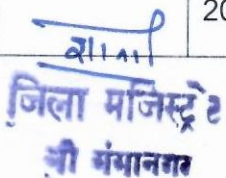 20
जिला मजिस्ट्रेट
श्री गंगानगर